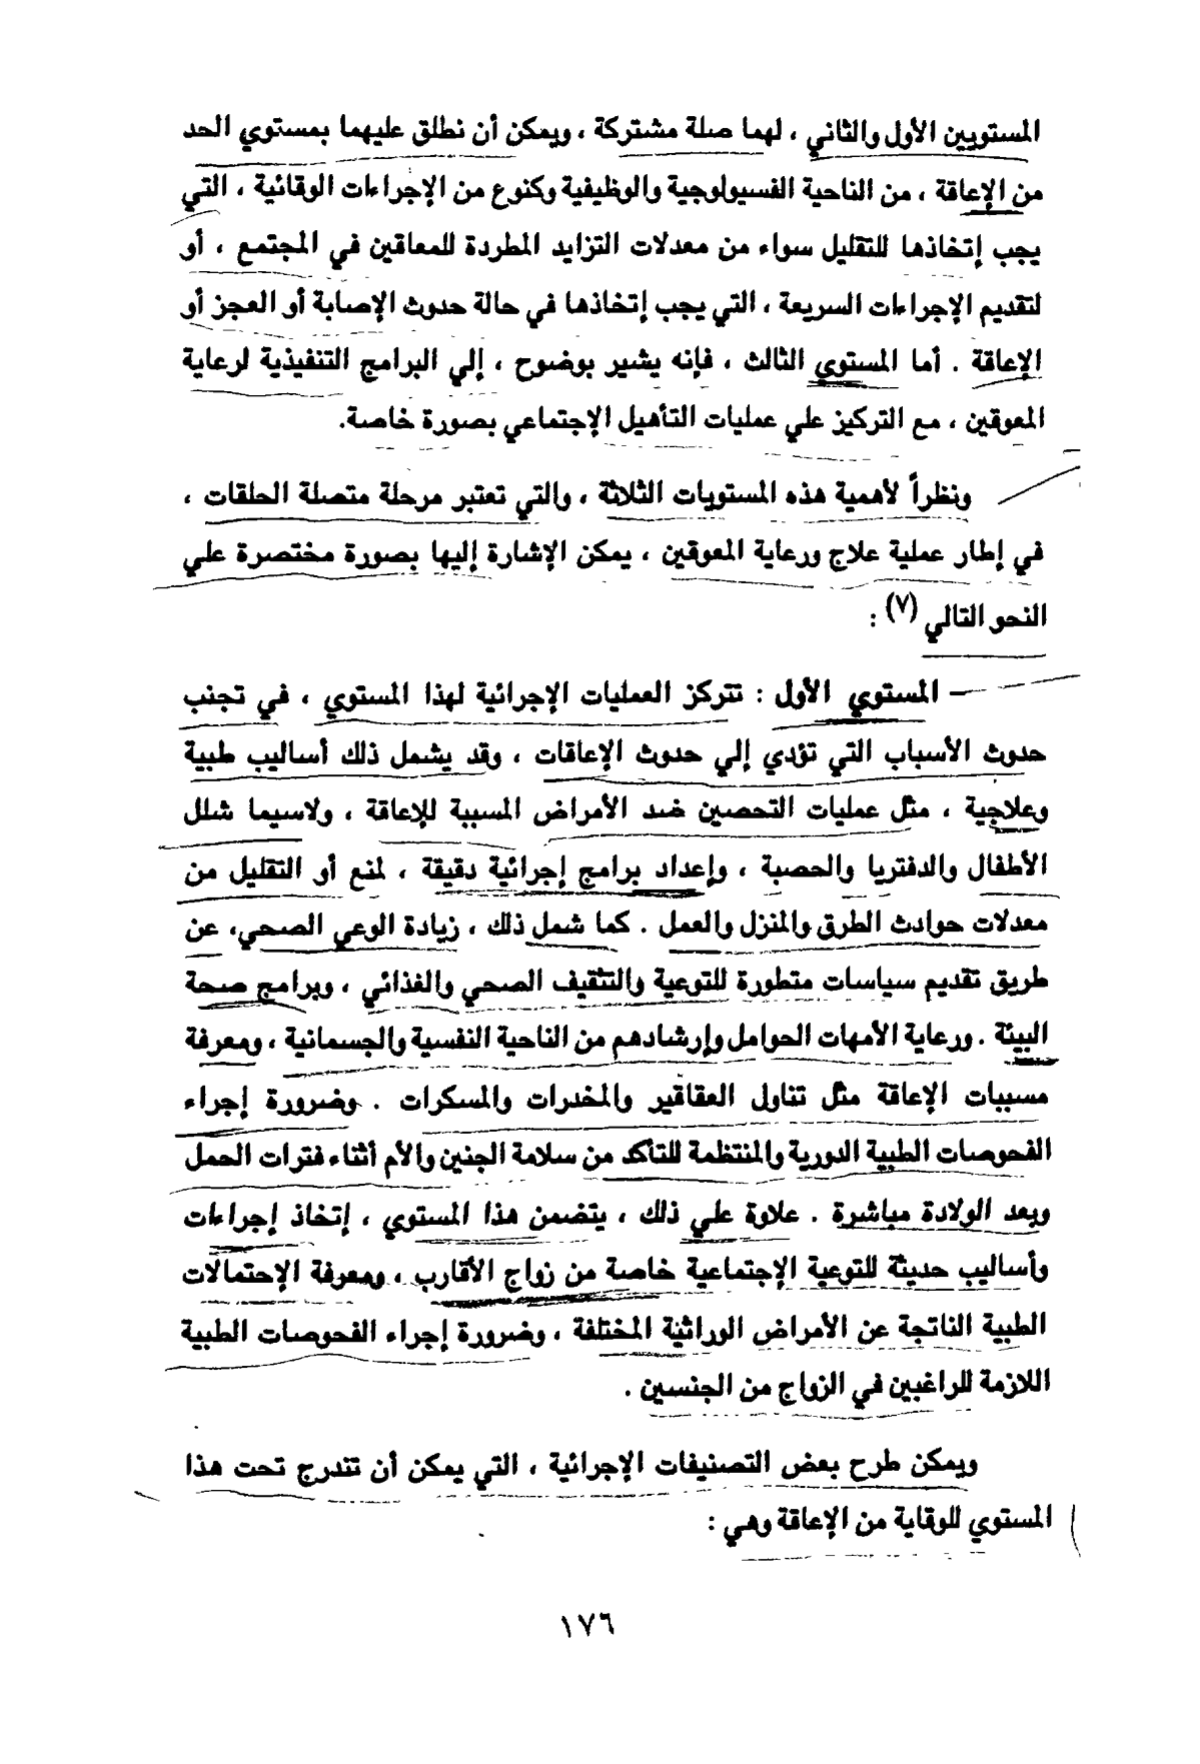 المستويين الأول والثاني ، لهما صلة مشتركة ، ويمكن أن نطلق عليهما بمستوي الحد
من الإعاقة ، من الناحية الفسيولوجية والوظيفية وكنوع من الإجراءات الوقائية ، التي
يجب إتخاذها للتقليل سواء من معدلات التزايد المطردة للمعاقين في المجتمع ، أو
لتقديم الإجراءات السريعة ، التي يجب إتخاذها في حالة حدوث الإصابة أو العجز أو
الإعاقة . أما المستوي الثالث ، فإنه يشير بوضوح ، إلي البرامج التنفيذية لرعاية
المعوقين ، مع التركيز علي عمليات التأهيل الإجتماعي بصورة خاصة.
ونظراً لأهمية هذه المستويات الثلاثة ، والتي تعتبر مرحلة متصلة الحلقات ،
في إطار عملية علاج ورعاية المعوقين ، يمكن الإشارة إليها بصورة مختصرة علي
النحو التالي (٧) :
– المستوي الأول : تتركز العمليات الإجرائية لهذا المستوي ، في تجنب
حدوث الأسباب التي تؤدي إلي حدوث الإعاقات ، وقد يشمل ذلك أساليب طبية
وعلاجية ، مثل عمليات التحصين ضد الأمراض المسببة للإعاقة ، ولاسيما شلل
الأطفال والدفتريا والحصبة ، وإعداد برامج إجرائية دقيقة ، لمنع أو التقليل من
معدلات حوادث الطرق والمنزل والعمل . كما شمل ذلك ، زيادة الوعي الصحي، عن
طريق تقديم سياسات متطورة للتوعية والتثقيف الصحي والغذائي ، وبرامج صحة
البيئة . ورعاية الأمهات الحوامل وإرشادهم من الناحية النفسية والجسمانية ، ومعرفة
مسببات الإعاقة مثل تناول العقاقير والمخدرات والمسكرات . وضرورة إجراء
الفحوصات الطبية الدورية والمنتظمة للتاكد من سلامة الجنين والأم أثناء فترات الحمل
وبعد الولادة مباشرة . علاوة علي ذلك ، يتضمن هذا المستوي ، إتخاذ إجراءات
وأساليب حديثة للتوعية الإجتماعية خاصة من زواج الأقارب ، ومعرفة الإحتمالات
الطبية الناتجة عن الأمراض الوراثية المختلفة ، وضرورة إجراء الفحوصات الطبية
اللازمة للراغبين في الزواج من الجنسين .
ويمكن طرح بعض التصنيفات الإجرائية ، التي يمكن أن تتدرج تحت هذا
المستوي للوقاية من الإعاقة وهي :
١٧٦